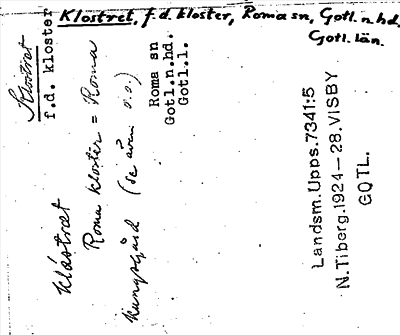 Klostret, f.d. kloster, Roma sn, Gotl. n. hd,
Gotl. län.
Klostret
f.d. kloster
Roma sn
Gotl.n.hd.
Gotl.l.
klástrat
Roma kloster = Roma
kungsgård (se även o.o.)
Landsm.Upps.7341:5
N.Tiberg.1924–28.VISBY
GOTL.